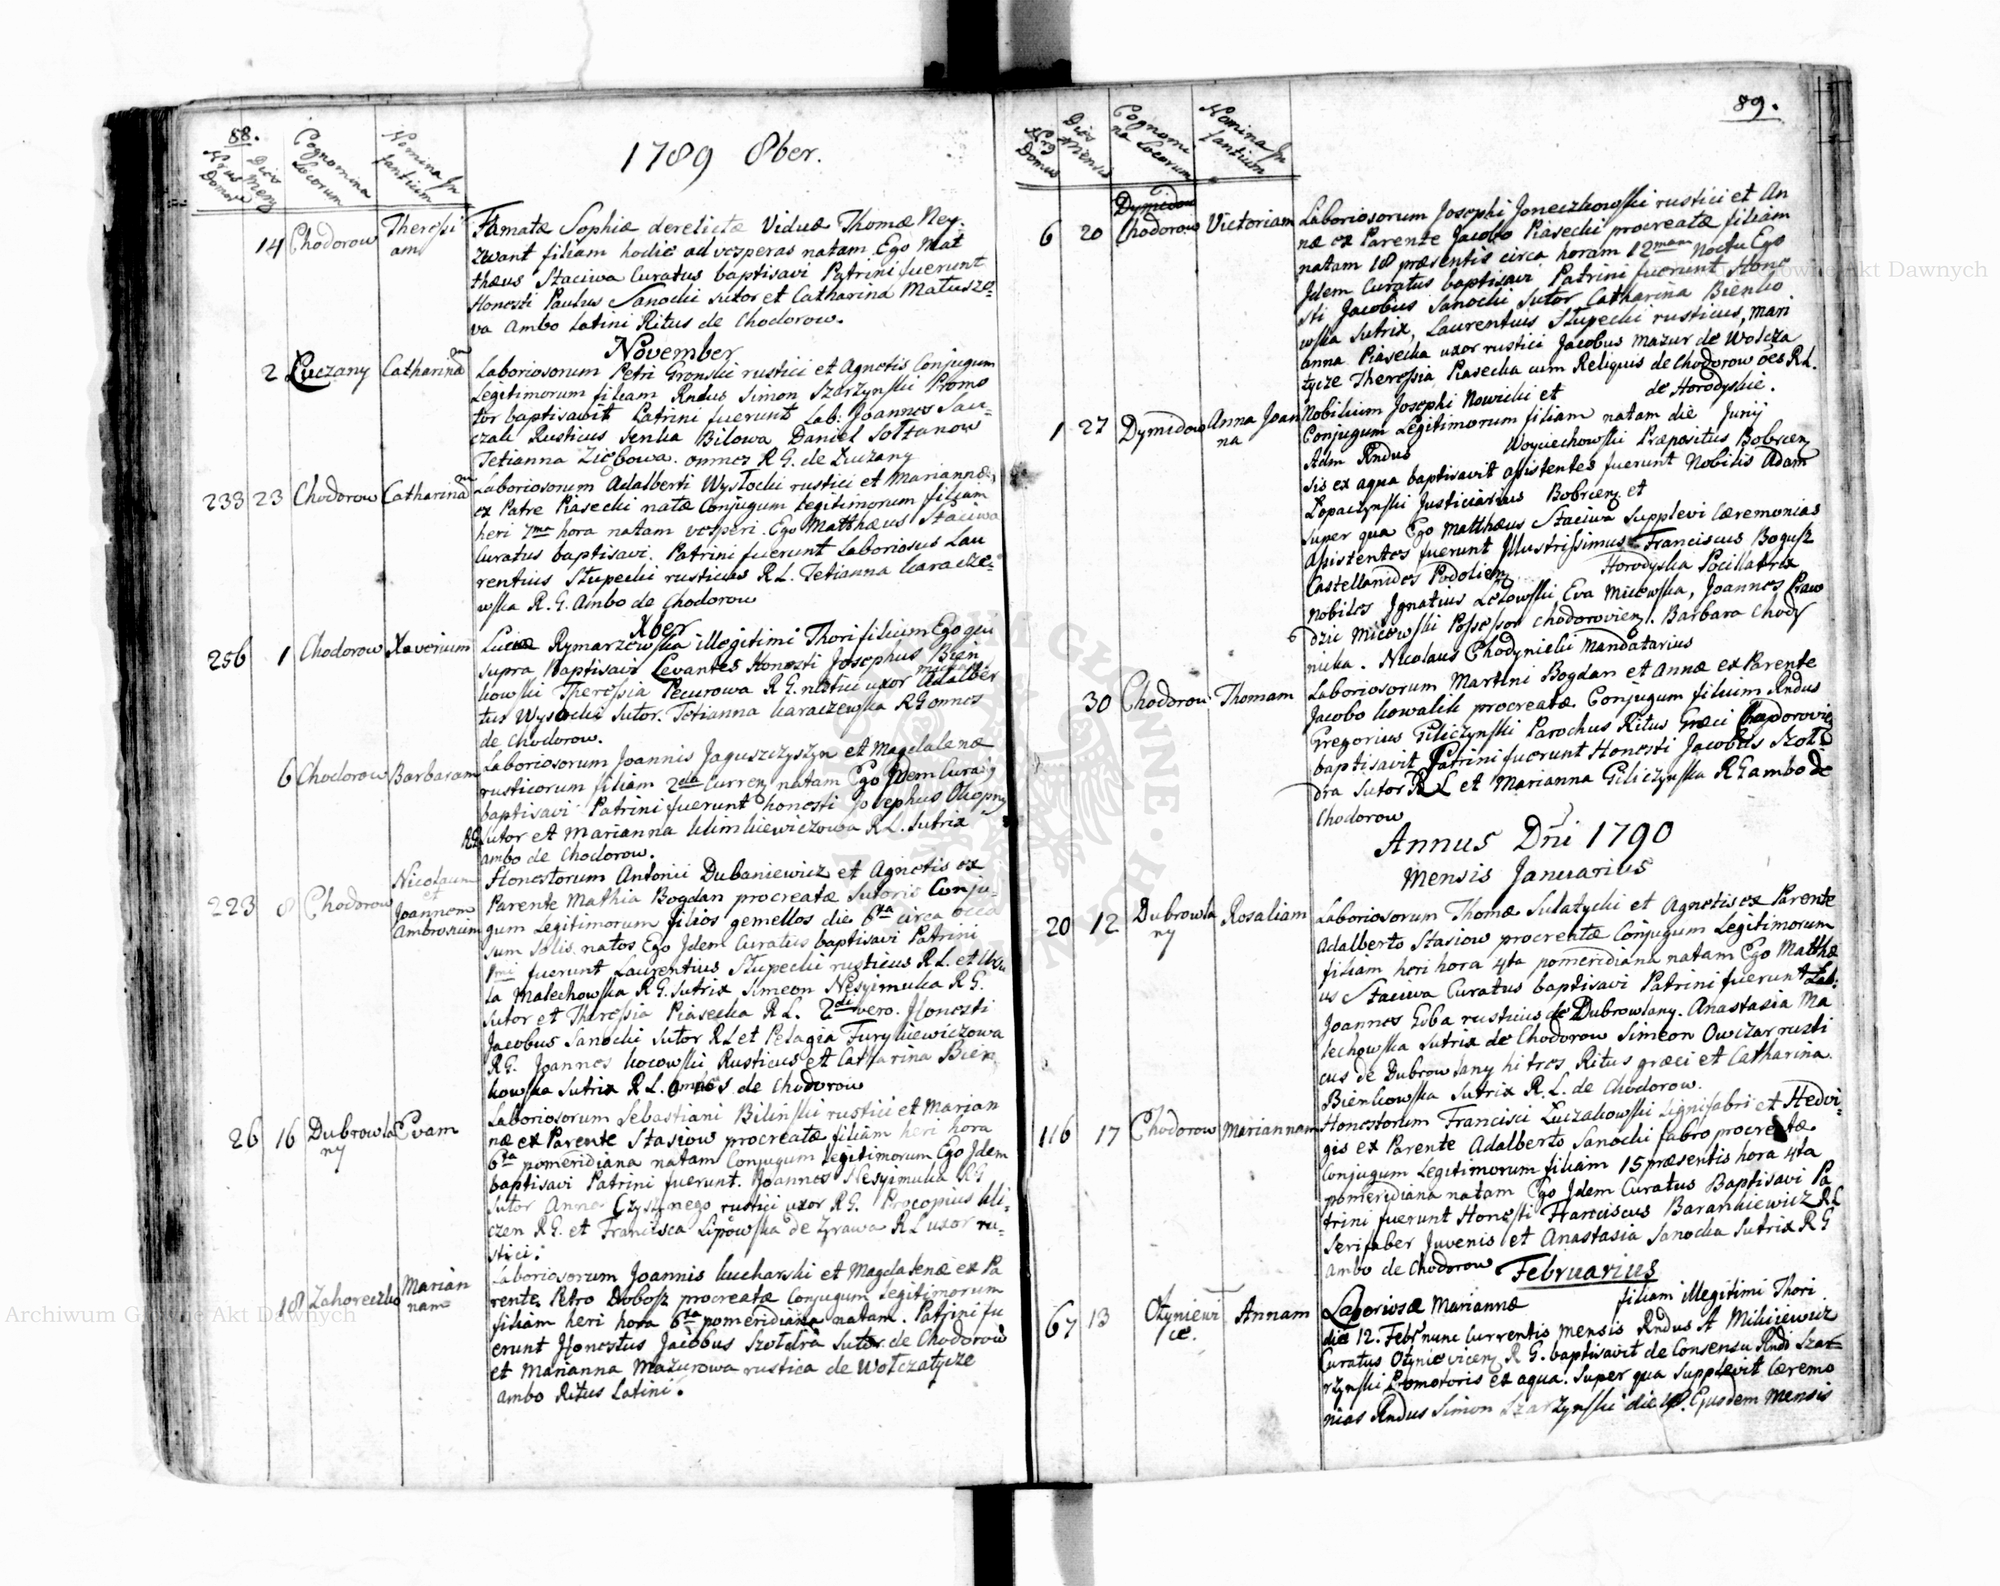 88.
Nrus Domus
Dies Mens
Cognomina Locorum
Nomina Infantium
1789 8ber.
14 Chodorow Theressiam
Famatæ Sophiæ derelictæ Viduæ Thomæ Ney-
zwant filiam hodie ad vesperas natam Ego Mat
thæus Staciwa Curatus baptisavi Patrini fuerunt
Honesti Paulus Sanocki sutor et Catharina Matusze-
va ambo Latini Ritus de Chodorow.
November
2 Luczany Catharinam
Laboriosorum Petri Gronski rustici et Agnetis Conjugum
Legitimorum filiam Rndus Simon Szarzynski Promo
tor baptisavit Patrini fuerunt Lab: Joannes Saw-
czak Rusticus Senka Bilowa Daniel Sołtanow
Tetianna Ziębowa. omnes R G. de Luczany
233 23 Chodorow Catharinam
Laboriosorum Adalberti Wysłocki rustici et Mariannæ,
ex Patre Piasecki natæ Conjugum Legitimorum filiam
heri 7ma hora natam vesperi. Ego Matthæus Staciwa
Curatus baptisavi. Patrini fuerunt Laboriosus Lau
rentius Słupecki rusticus R L. Tetianna Karacze-
wska R. G. Ambo de Chodorow
Xber
256 1 Chodorow Xaverium
Luciæ Rymarzewska illegitimi Thori filium Ego qui
supra baptisavi Levantes Honesti Josephus Bien
kowski Theressia Pecurowa R G. uxor Adalber
tus Wysocki Sutor. Tetianna Karaczewska R G omnes
de Chodorow.
6 Chodorow Barbaram
Laboriosorum Joannis Jaguszczyszyn et Magdalenæ
rusticorum filiam 2da Curren natam Ego Idem Curatus
baptisavi Patrini fuerunt honesti Josephus Okopny
R G. sutor et Marianna Klimkiewiczowa R L. Sutrix
ambo de Chodorow.
223 8 Chodorow Nicolaum et Joannem Ambrosium
Honestorum Antonii Dubaniewicz et Agnetis ex
Parente Mathia Bogdan procreatæ Sutoris Conju-
gum Legitimorum filios gemellos die 6ta circa occa
sum solis natos Ego Idem Curatus baptisavi Patrini
1mi fuerunt Laurentius Słupecki rusticus R L. et
la Malechowska R G. Sutrix Simeon Nesyimuka R G.
Sutor et Theressia Piasecka R L. 2di vero. Honesti
Jacobus Sanocki Sutor R L et Pelagia Furykiewiczowa
R G. Joannes Kocowski Rusticus et Catharina Bien
kowska Sutrix R L. omnes de Chodorow
26 16 Dubrowlany Evam
Laboriosorum Sebastiani Bilinski rustici et Marian
næ ex Parente Stasiow procreatæ filiam heri hora
6ta pomeridiana natam Conjugum Legitimorum Ego Idem
baptisavi Patrini fuerunt. Joannes Nesyimuka R G
Sutor Anna Czyszynego rustici uxor R G. Procopius Kli-
czen R G. et Francisca Lipowska de Zyrawa R L uxor ru-
stici.
18 Zahoreczko Mariannam
Laboriosorum Joannis Kucharski et Magdalenæ ex Pa
rente Petro Dobosz procreatæ Conjugum Legitimorum
filiam heri hora 6ta pomeridiana natam. Patrini fu
erunt Honestus Jacobus Szołdra Sutor de Chodorow
et Marianna Mazurowa rustica de Wołczatycze
ambo Ritus Latini.
89.
Nro Domus
Dies Mensis
Cognomina Locorum
Nomina Infantium
Dymidow
6 20 Chodorow Victoriam
Laboriosorum Josephi Joneczkowski rustici et An
næ ex Parente Jacobo Piasecki procreatæ filiam
natam 18 præsentis circa horam 12mam Noctu Ego
Idem Curatus baptisavi Patrini fuerunt Hone
sti Jacobus Sanocki Sutor Catharina Bienko
wska Sutrix, Laurentius Słupecki rusticus, Mari
anna Piasecka uxor rustici Jacobus Mazur de Wołcza
tycze Theressia Piasecka cum Reliquis de Chodorow oẽs R L.
1 27 Dymidow Anna Joanna
Nobilium Josephi Nowicki et de Horodyskie.
Conjugum Legitimorum filiam natam die Junij
Adm Rndus Woyciechowski Præpositus Bobrcen
sis ex aqua baptisavit assistentes fuerunt Nobilis Adam
Łopaczynski Justiciarius Bobrcen et
super qua Ego Matthæus Staciwa Supplevi Cæremonias
Assistentes fuerunt Illustrissimus Franciscus Bogusz
Castellanides Podolien Horodyska Pocillatrix
Nobiles Ignatius Lessowski Eva Micewska, Joannes Praw
dzic Micewski Possessor Chodorovien. Barbara Chody
nicka. Nicolaus Chodynicki Mandatarius
30 Chodorow Thomam
Laboriosorum Martini Bogdan et Annæ ex Parente
Jacobo Kowalik procreatæ Conjugum filium Rndus
Gregorius Giliczynski Parochus Ritus Græci Chodorovien
baptisavit Patrini fuerunt Honesti Jacobus Szoł
dra Sutor R L et Marianna Giliczynska R G ambo de
Chodorow
Annus Dni 1790
Mensis Januarius
20 12 Dubrowlany Rosaliam
Laboriosorum Thomæ Sulatycki et Agnetis ex Parente
Adalberto Stasiow procreatæ Conjugum Legitimorum
filiam heri hora 4ta pomeridiana natam Ego Matthæ
us Staciwa Curatus baptisavi Patrini fuerunt Lab:
Joannes Exba rusticus de Dubrowlany. Anastasia Ma
lechowska Sutrix de Chodorow Simeon Owczar rusti
cus de Dubrowlany hi tres Ritus græci et Catharina
Bienkowska Sutrix R. L. de Chodorow.
116 17 Chodorow Mariannam
Honestorum Francisci Łuczakowski Lignifabri et Hedvi-
gis ex Parente Adalberto Sanocki fabro procreatæ
Conjugum Legitimorum filiam 15 præsentis hora 4ta
pomeridiana natam Ego Idem Curatus Baptisavi Pa
trini fuerunt Honesti Franciscus Barankiewicz R L
Serifaber Juvenis et Anastasia Sanocka Sutrix R G
Ambo de Chodorow
Februarius
67 13 Otyniewice. Annam
Laboriosæ Mariannæ filiam illegitimi Thori
die 12. Febr nunc Currentis mensis Rndus A Mikiiewicz
Curatus Otynievicen R G. baptisavit de Consensu Rndi Szar-
rzynski Promotoris ex aqua. Super qua Supplevit Cæremo
nias Rndus Simon Szarzynski die 18. Ejusdem Mensis
Archiwum Główne Akt Dawnych